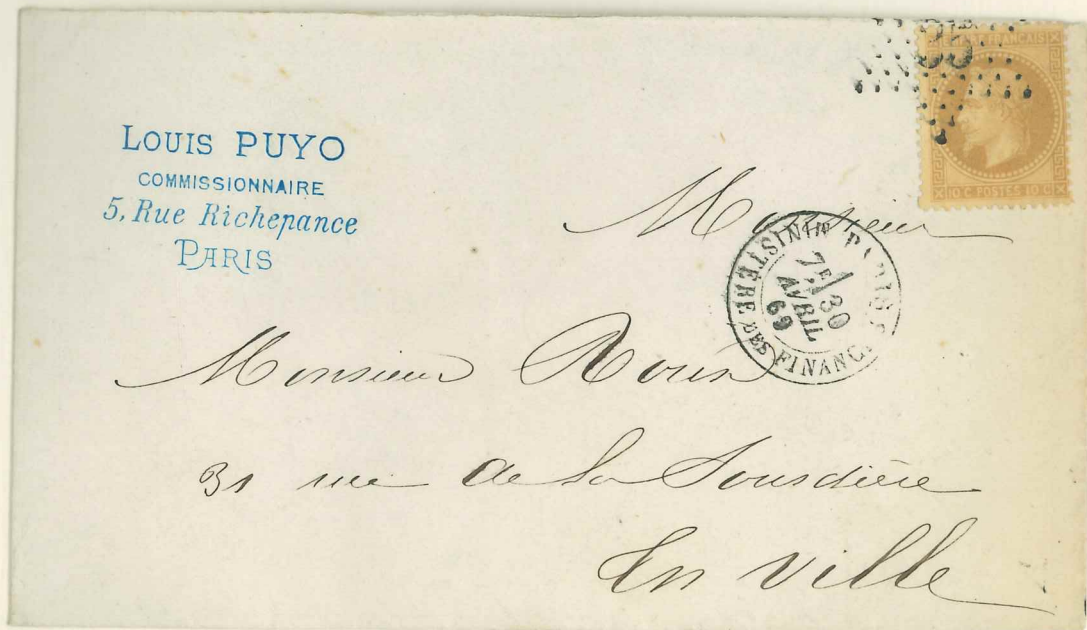 LOUIS PUYO
COMMISSIONNAIRE
5, Rue Richepance
PARIS
35
EMPIRE FRANÇAIS
10 C POSTES 10 C
Monsieur
PARIS MINISTERE DES FINANC
7E 30 AVRIL 69
Monsieur
31 rue de la Sourdière
En Ville